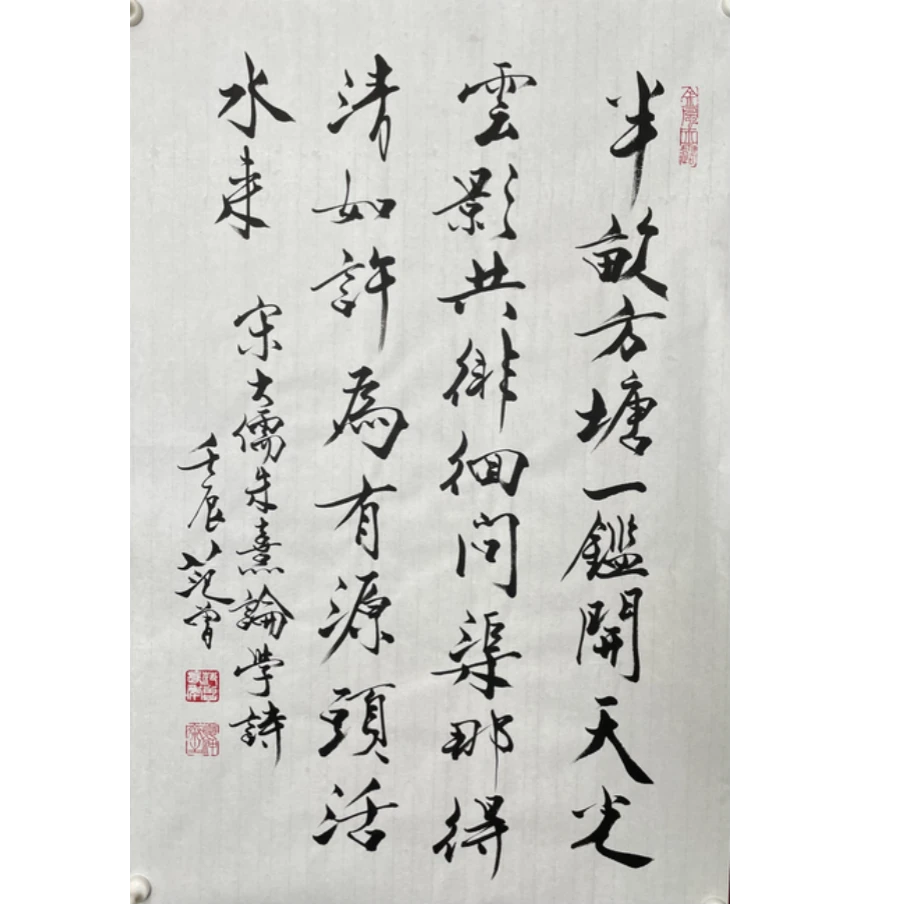 半畝方塘一鑑開天光
雲影共徘徊問渠那得
清如許為有源頭活
水来
宋大儒朱熹論學詩
壬辰范曾